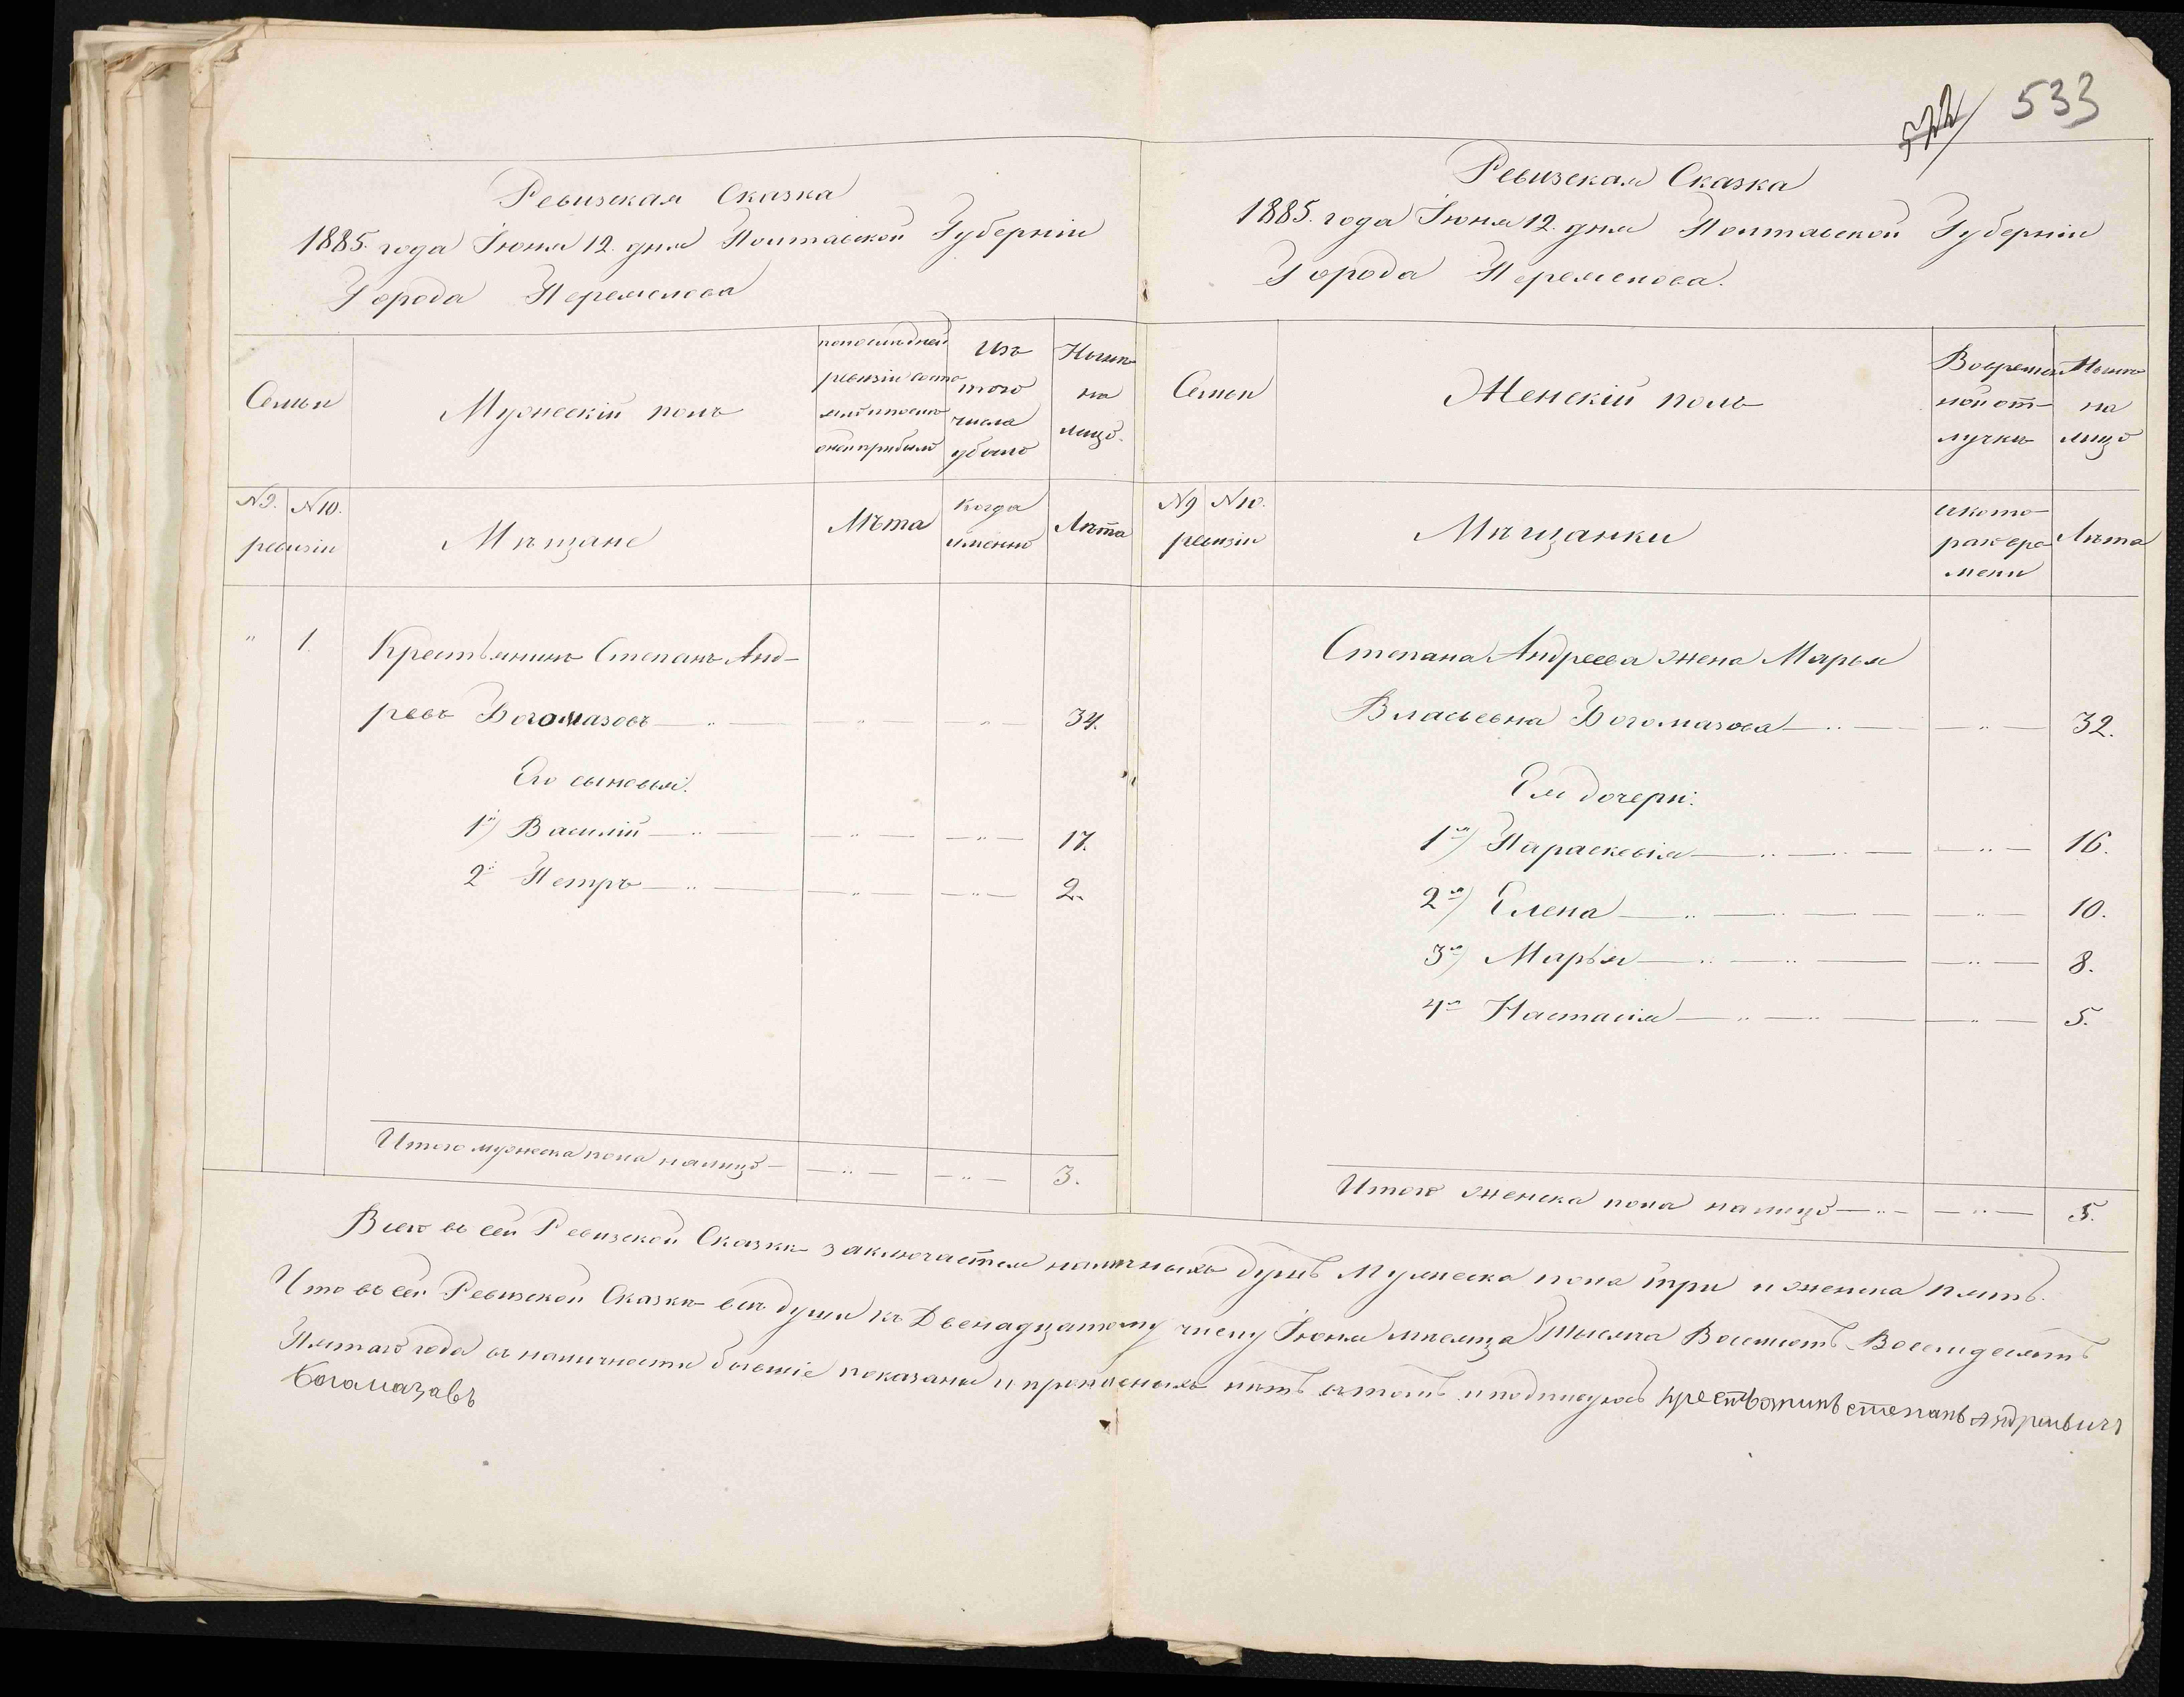 533
Ревизская Сказка
1885. года Іюня 12. дня Полтавской Губерніи
Города Переяслова
Семьи
Мужескій полъ
по последней
ревизіи состо
яло и после
оной прибыло
Изъ
того
числа
убыло
Ныне
на
лицо.
N 9. N 10.
ревизіи
Мѣщане
Лѣта
когда
именно
Лѣта
" 1. Крестьянинъ Степанъ Анд-
реевъ Богомазовъ — " — — " — — " — 34.
Его сыновья:
1й) Василій — " — — " — — " — 17.
2й Петръ — " — — " — — " — 2.
Итого мужеска пола налицо — — " — — " — 3.
Ревизская Сказка
1885. года Іюня 12. дня Полтавской Губерніи
Города Переяслова.
Семьи
Женскій полъ
Во времен
ной от-
лучкѣ
Ныне
на
лицо
N 9 N 10.
ревизіи
Мѣщанки
ското-
раго вре-
мени
Лѣта
Степана Андреева жена Марья
Власьевна Богомазова — " — — " — 32.
Ея дочери:
1я) Параскевія — " — " — — " — 16.
2я) Елена — " — " — — " — 10.
3я) Марья — " — " — — " — 8.
4я Настасія — " — " — — " — 5.
Итого женска пола налицо — " — — " — 5.
Всего въ сей Ревизской Сказкѣ заключается наличныхъ душъ Мужеска пола три и женска пять.
Что въ сей Ревизской Сказкѣ всѣ души къ Двенадцатому числу Іюня мѣсяца Тысяча Восемсотъ Восемдесятъ
Пятаго года въ наличности бывшіе показаны и прописныхъ нѣтъ въ томъ и подписуюсь крестьянинъ степанъ андреивичъ
Богамазавъ